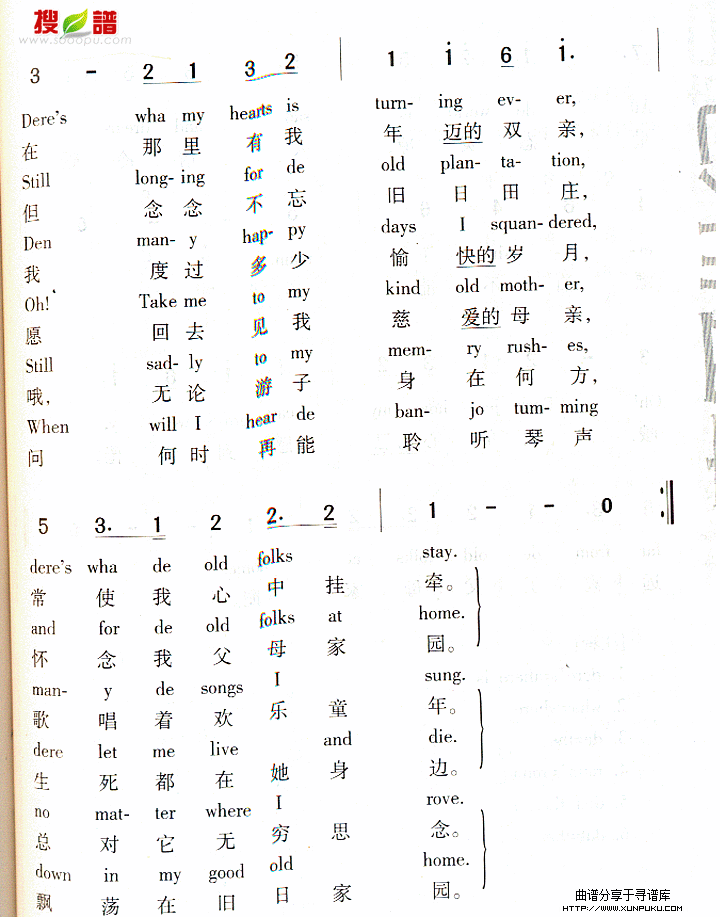 搜谱
www.sooopu.com
3 - 2 1 3 2 | 1 i 6 i. |
Dere's wha my hearts is turn- ing ev- er,
在 那 里 有 我 年 迈的 双 亲,
Still long- ing for de old plan- ta- tion,
但 念 念 不 忘 旧 日 田 庄,
Den man- y hap- py days I squan- dered,
我 度 过 多 少 愉 快的 岁 月,
Oh! Take me to my kind old moth- er,
愿 回 去 见 我 慈 爱的 母 亲,
Still sad- ly to my mem- ry rush- es,
哦, 无 论 游 子 身 在 何 方,
When will I hear de ban- jo tum- ming
问 何 时 再 能 聆 听 琴 声
5 3. 1 2 2. 2 | 1 - - 0 :|
dere's wha de old folks stay.
常 使 我 心 中 挂 牵。
and for de old folks at home.
怀 念 我 父 母 家 园。
man- y de songs I sung.
歌 唱 着 欢 乐 童 年。
dere let me live and die.
生 死 都 在 她 身 边。
no mat- ter where I rove.
总 对 它 无 穷 思 念。
down in my good old home.
飘 荡 在 旧 日 家 园。
曲谱分享于寻谱库
HTTP://WWW.XUNPUKU.COM